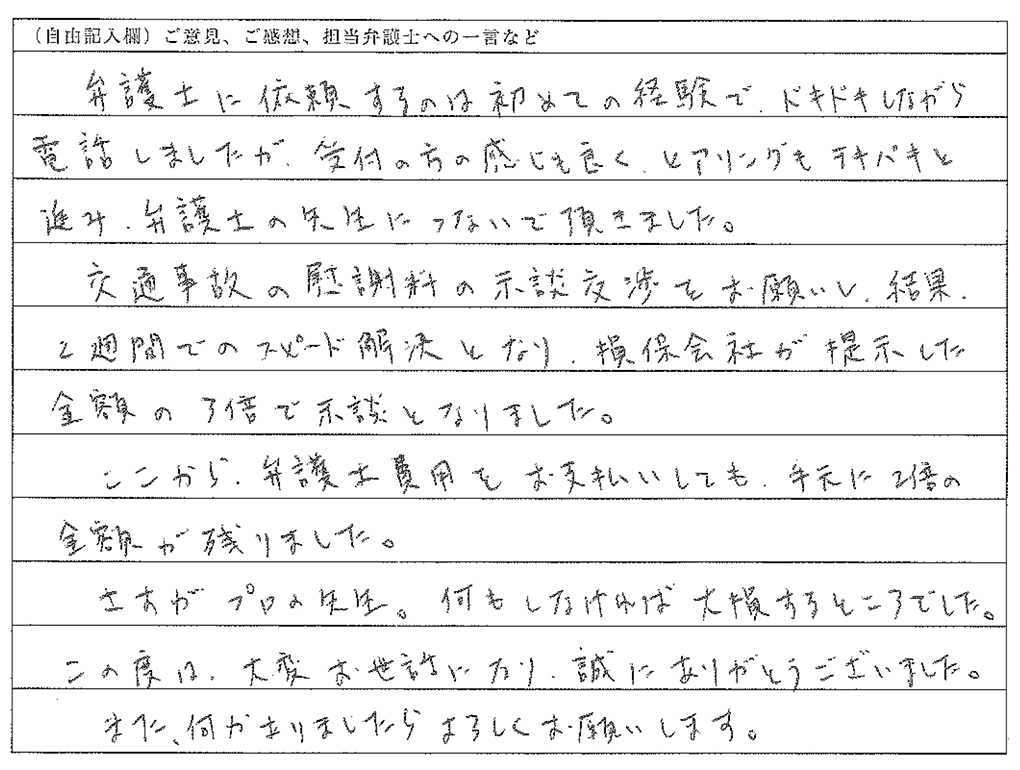 （自由記入欄）ご意見、ご感想、担当弁護士への一言など
弁護士に依頼するのは初めての経験で、ドキドキしながら
電話しましたが、受付の方の感じも良く、ヒアリングもテキパキと
進み、弁護士の先生につないで頂きました。
交通事故の慰謝料の示談交渉をお願いし、結果、
2週間でのスピード解決となり、損保会社が提示した
金額の3倍で示談となりました。
ここから、弁護士費用をお支払いしても、手元に2倍の
金額が残りました。
さすがプロの先生。何もしなければ大損するところでした。
この度は、大変お世話になり、誠にありがとうございました。
また、何かありましたらよろしくお願いします。